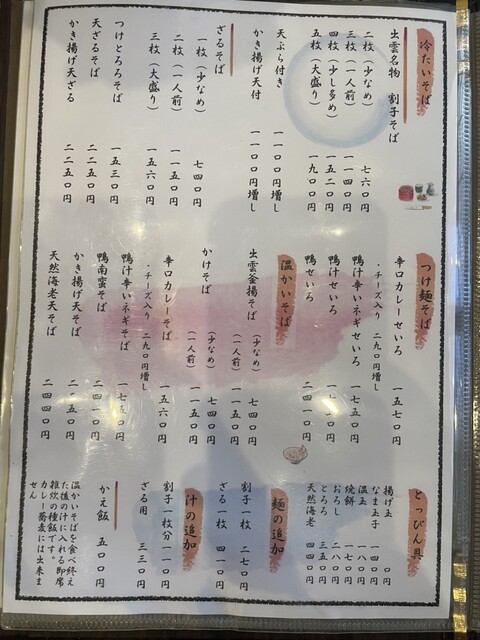 冷たいそば
出雲名物 割子そば
二枚（少なめ） 七六〇円
三枚（一人前） 一一四〇円
四枚（少し多め） 一五二〇円
五枚（大盛り） 一九〇〇円
天ぷら付き 一一〇〇円増し
かき揚げ天付 一一〇〇円増し
ざるそば
一枚（少なめ） 七四〇円
二枚（一人前） 一一五〇円
三枚（大盛り） 一五六〇円
つけとろろそば 一五三〇円
天ざるそば 二二五〇円
かき揚げ天ざる 二二五〇円
つけ麺そば
辛口カレーせいろ 一五七〇円
・チーズ入り 二九〇円増し
鴨汁辛いネギせいろ 一七五〇円
鴨汁せいろ
鴨せいろ 二四一〇円
温かいそば
出雲釜揚そば （少なめ） 七四〇円
（一人前） 一一五〇円
かけそば （少なめ） 七四〇円
（一人前） 一一五〇円
辛口カレーそば 一五六〇円
・チーズ入り 二九〇円増し
鴨汁辛いネギそば
鴨南蛮そば 二四一〇円
かき揚げ天そば
天然海老天そば 二四四〇円
とっぴん具
揚げ玉 〇円
なま玉子 一四〇円
温玉 一八〇円
焼餅 一七〇円
おろし 二八〇円
とろろ 三五〇円
天然海老 四四〇円
麺の追加
割子一枚 二七〇円
ざる一枚 四一〇円
汁の追加
割子一枚分 一一〇円
ざる用 三三〇円
かえ飯 五〇〇円
温かいそばを食べ終え
た後の汁に入れる即席
雑炊の種飯です。
カレー蕎麦には出来ま
せん